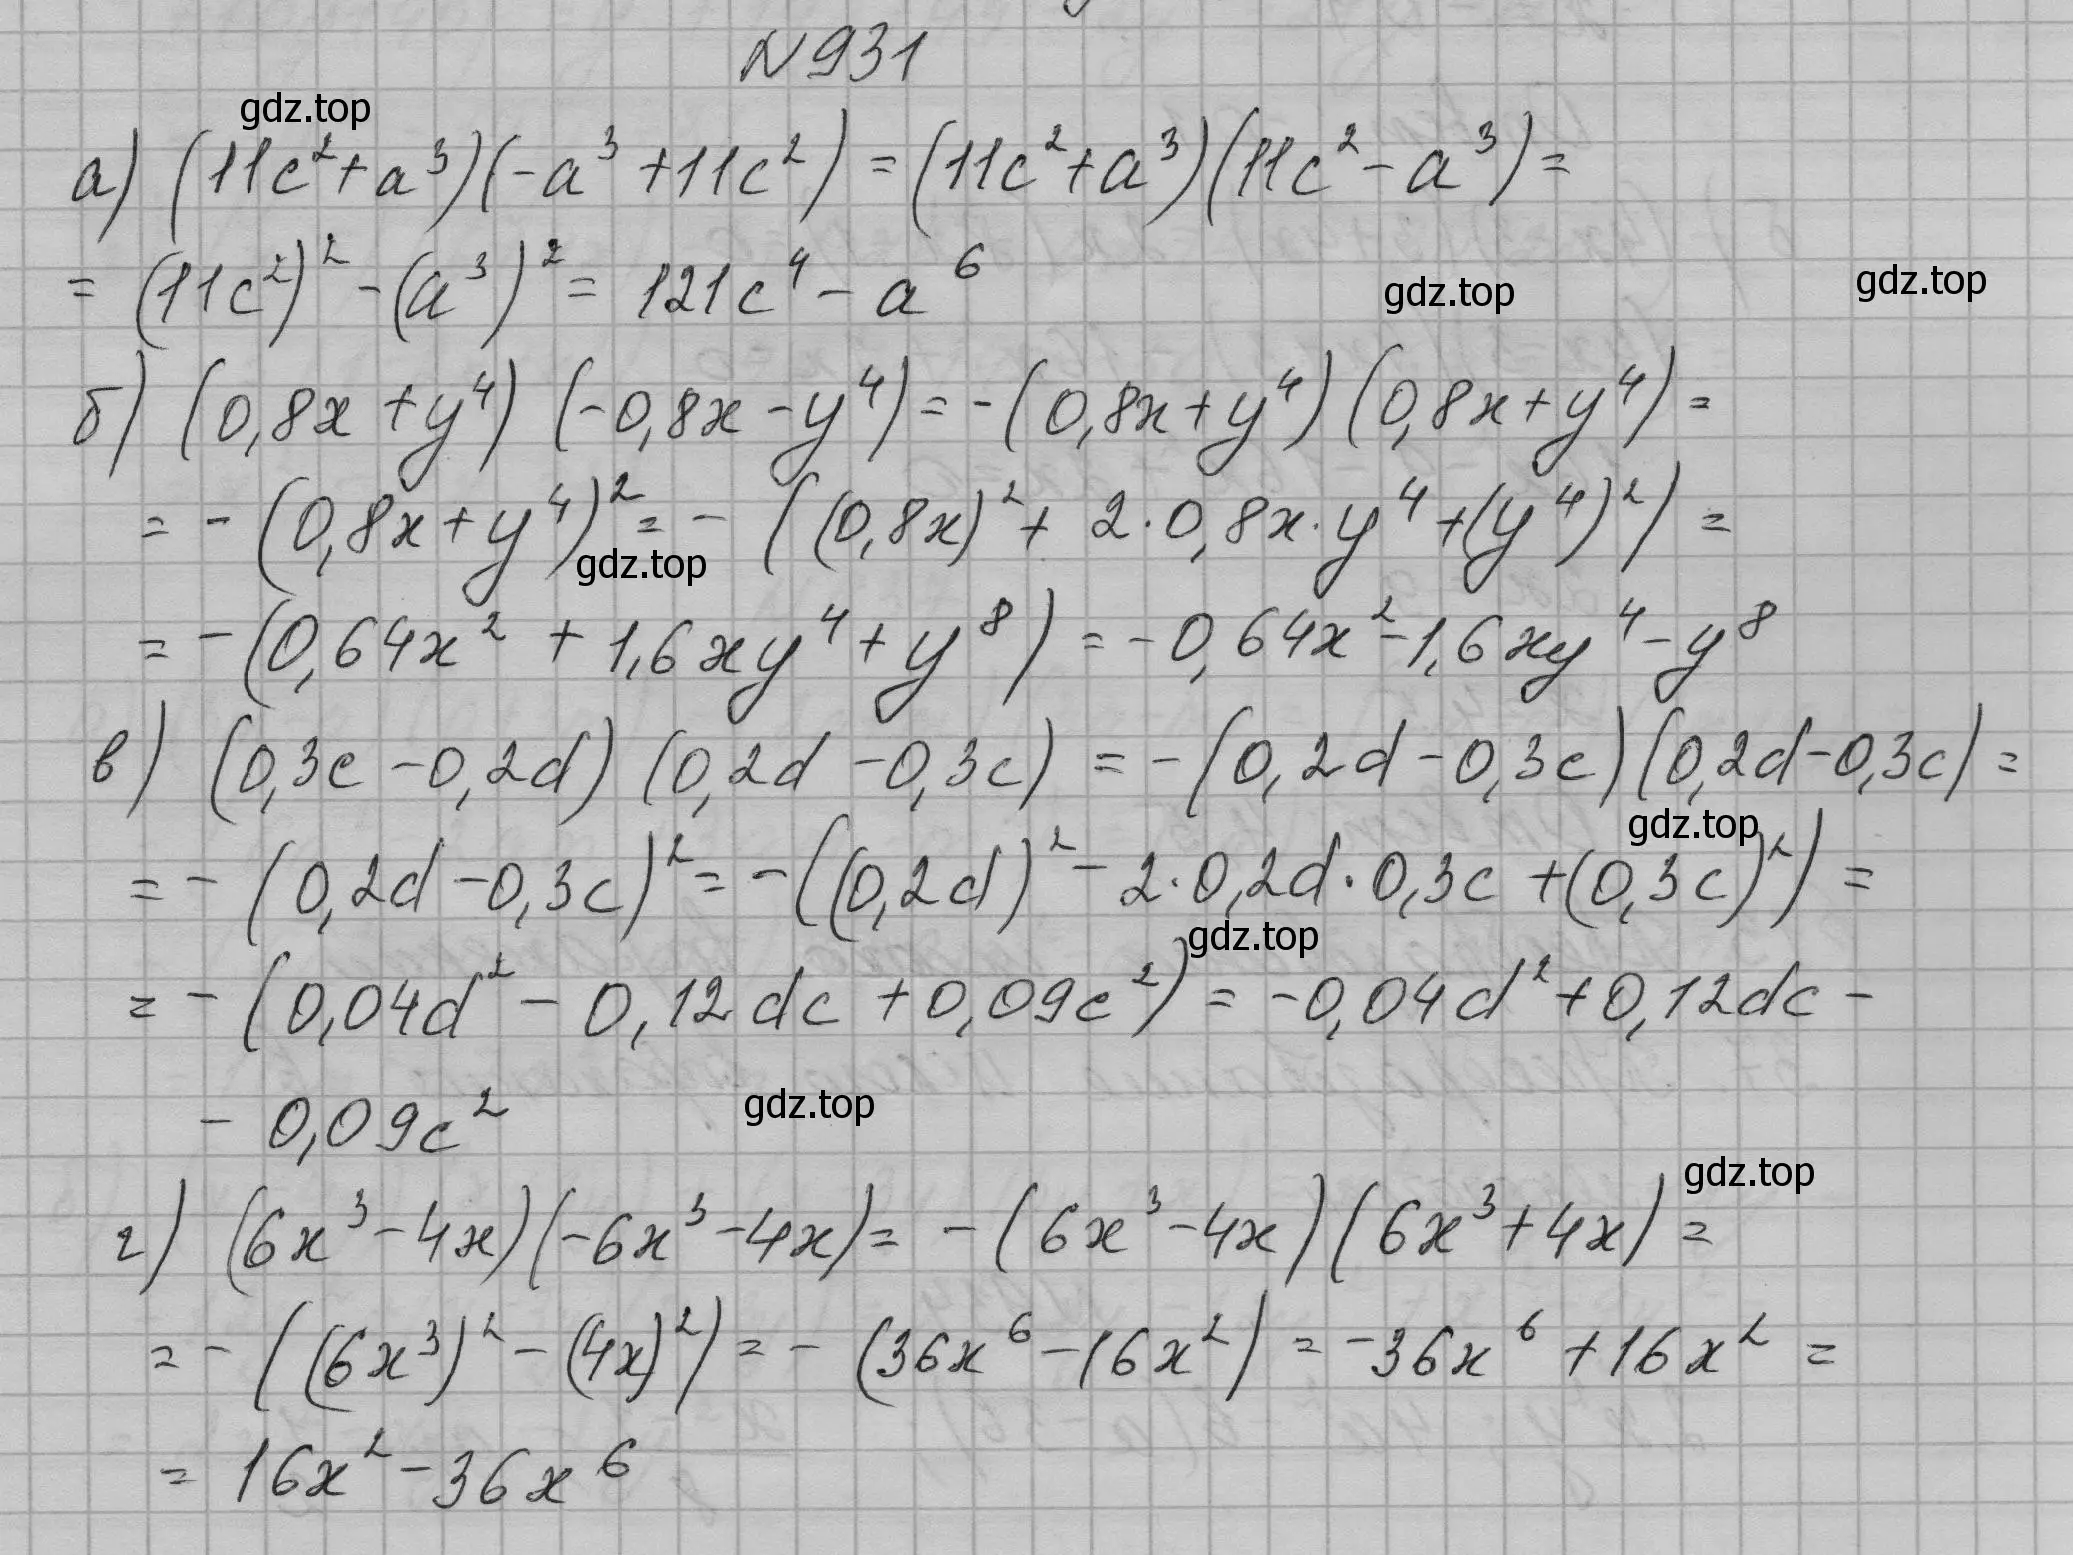 N 931
gdz.top
а) (11c² + a³)(-a³ + 11c²) = (11c² + a³)(11c² - a³) =
= (11c²)² - (a³)² = 121c⁴ - a⁶
gdz.top
gdz.top
б) (0,8x + y⁴) (-0,8x - y⁴) = -(0,8x + y⁴)(0,8x + y⁴) =
= -(0,8x + y⁴)² = -((0,8x)² + 2·0,8x·y⁴ + (y⁴)²) =
gdz.top
= -(0,64x² + 1,6xy⁴ + y⁸) = -0,64x² - 1,6xy⁴ - y⁸
в) (0,3c - 0,2d) (0,2d - 0,3c) = -(0,2d - 0,3c)(0,2d - 0,3c) =
gdz.top
= -(0,2d - 0,3c)² = -((0,2d)² - 2·0,2d·0,3c + (0,3c)²) =
gdz.top
= -(0,04d² - 0,12dc + 0,09c²) = -0,04d² + 0,12dc -
- 0,09c²
gdz.top
gdz.top
г) (6x³ - 4x)(-6x³ - 4x) = -(6x³ - 4x)(6x³ + 4x) =
= -((6x³)² - (4x)²) = -(36x⁶ - 16x²) = -36x⁶ + 16x² =
= 16x² - 36x⁶